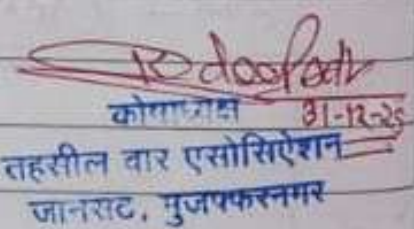 कोषाध्यक्ष 31-12-25
तहसील वार एसोसिऐशन
जानसट, मुजफ्फरनगर